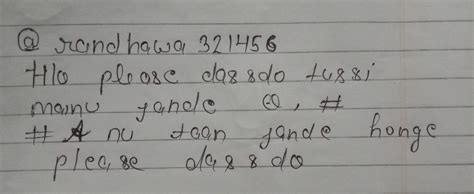 @ randhawa 321456
Hlo please dassdo tussi
mainu jande o, #
# A nu taan jande honge
please dassdo